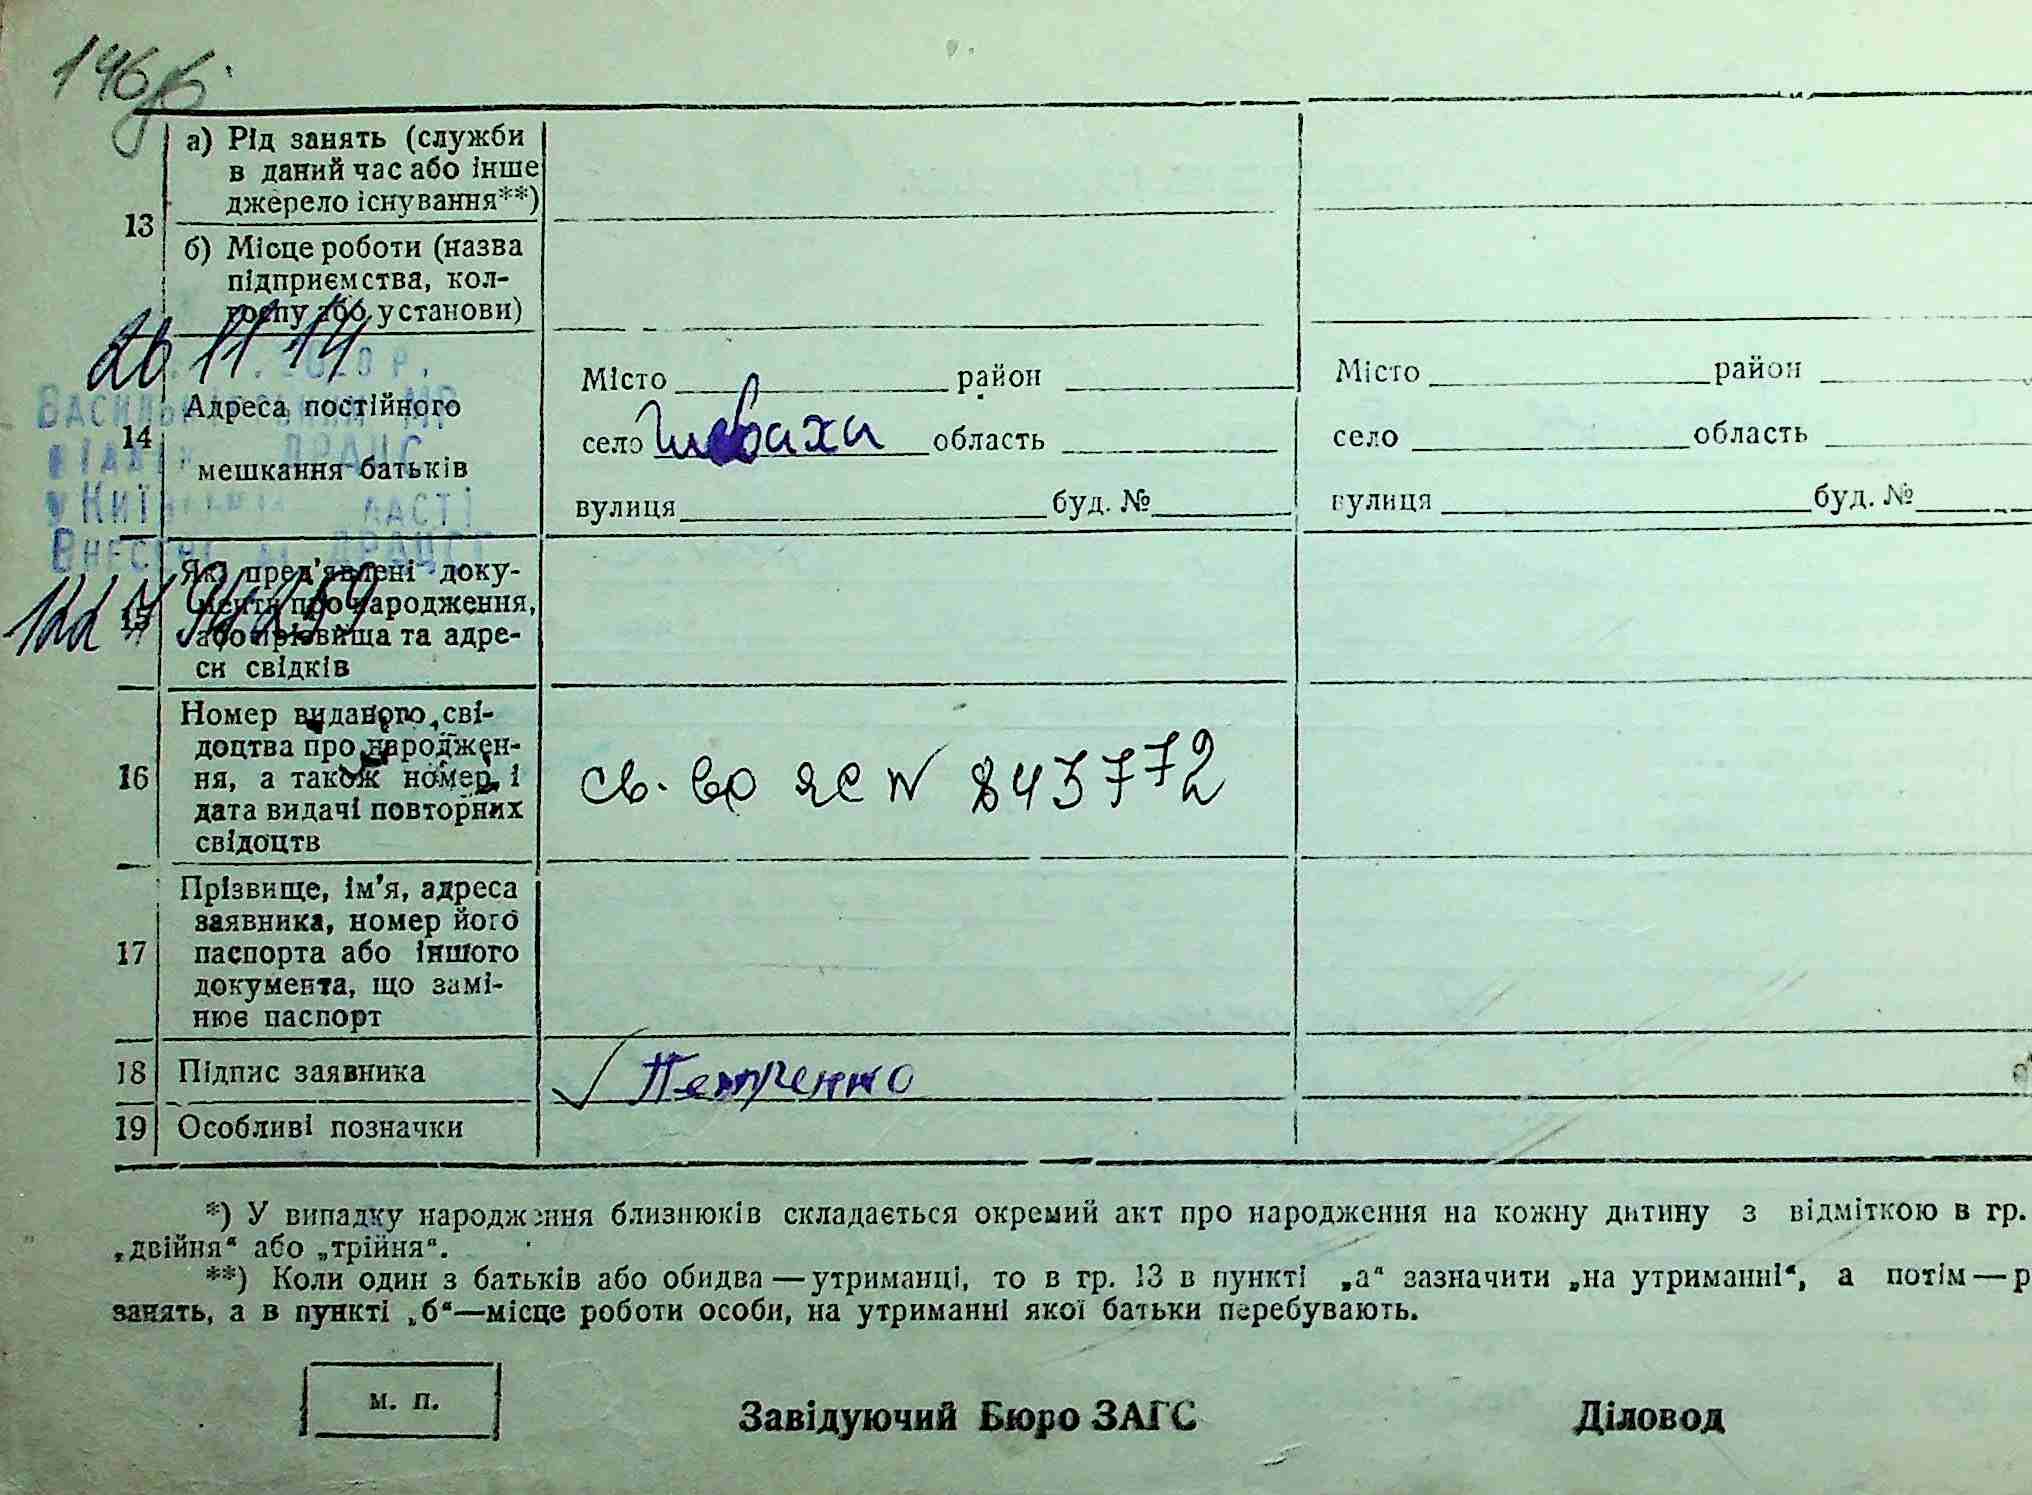 146 зб.
13
а) Рід занять (служби
в даний час або інше
джерело існування**)
б) Місце роботи (назва
підприємства, кол-
госпу або установи)
26 11 14
14
Адреса постійного
мешкання батьків
Місто район
село Глеваха область
вулиця буд. №
Місто район
село область
вулиця буд. №
у Київ ласті
Внесено ДРАЦСГ
15
Які пред'явлені доку-
менти про народження,
або прізвища та адре-
си свідків
16
Номер виданого сві-
доцтва про народжен-
ня, а також номер і
дата видачі повторних
свідоцтв
св. во ЯС N 843772
17
Прізвище, ім'я, адреса
заявника, номер його
паспорта або іншого
документа, що замі-
нює паспорт
18 Підпис заявника Петренко
19 Особливі позначки
*) У випадку народження близнюків складається окремий акт про народження на кожну дитину з відміткою в гр.
„двійня“ або „трійня“.
**) Коли один з батьків або обидва — утриманці, то в гр. 13 в пункті „а“ зазначити „на утриманні“, а потім — р
занять, а в пункті „б“—місце роботи особи, на утриманні якої батьки перебувають.
м. п.
Завідуючий Бюро ЗАГС Діловод